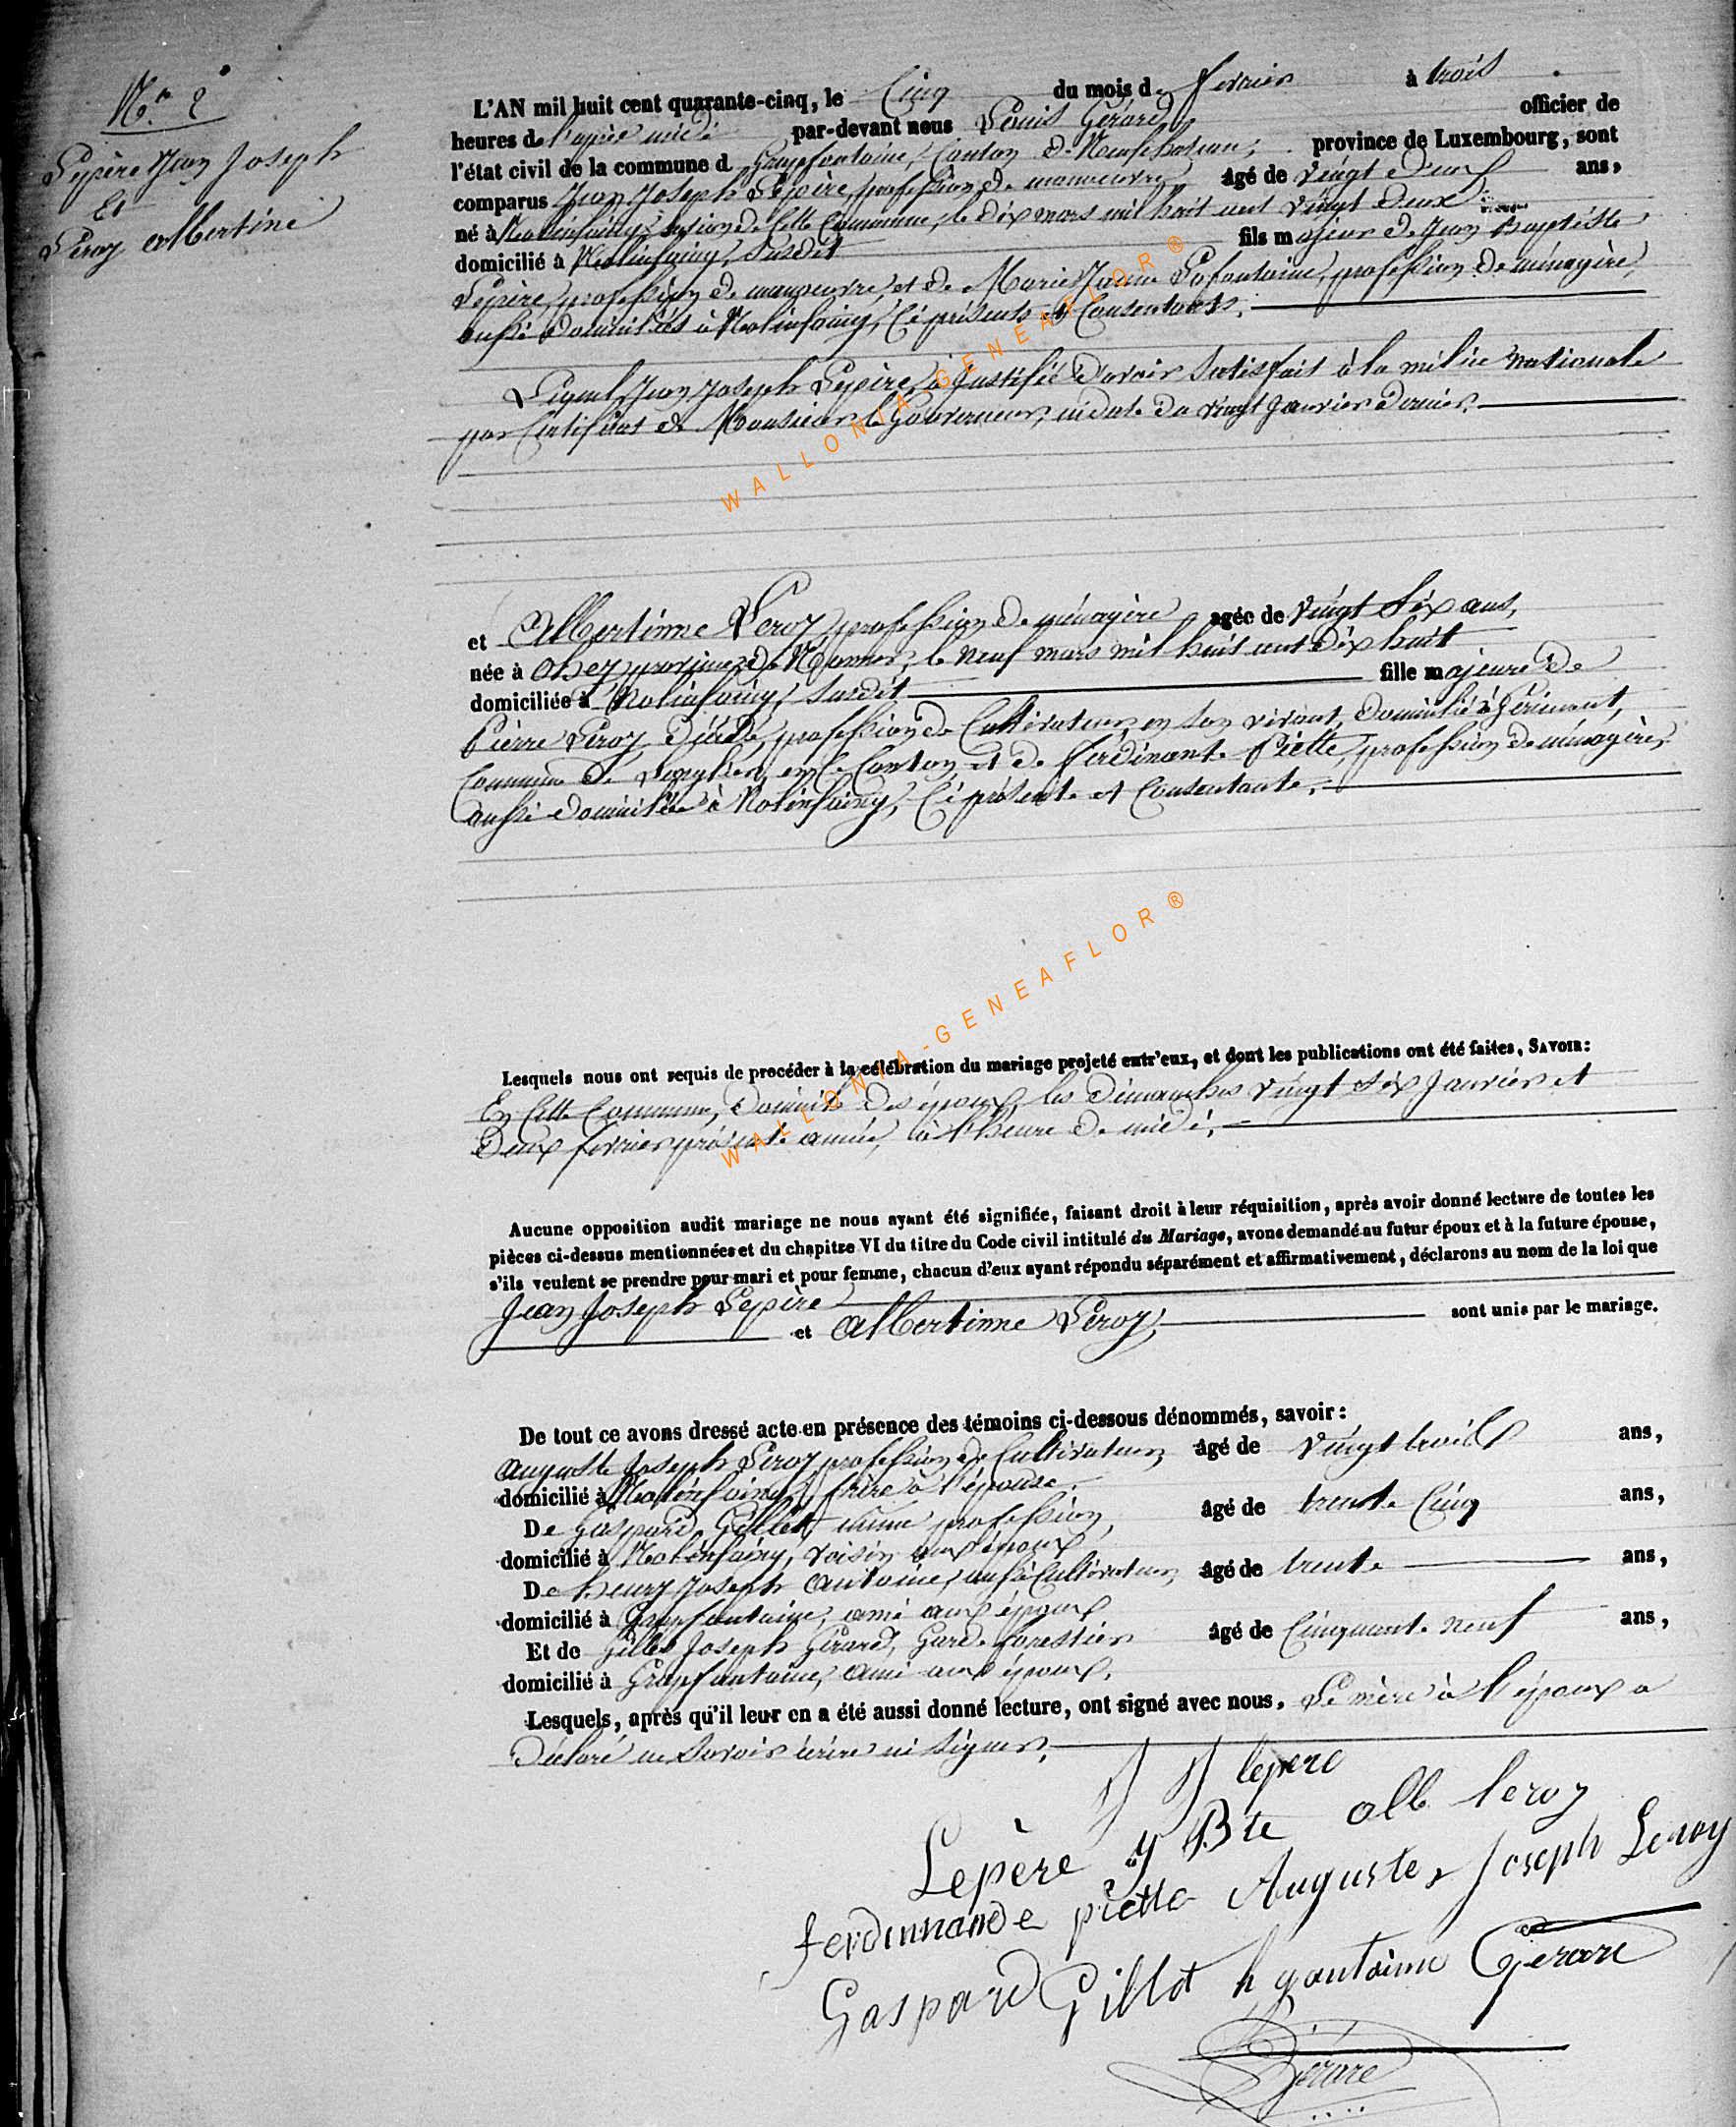 N.° 2
Lepère Jean Joseph
Et
Leroy Albertine
L'AN mil huit cent quarante-cinq, le Cinq du mois de fevrier à trois
heures de l'après midi par-devant nous Louis Gérard, officier de
l'état civil de la commune d Grapfontaine, Canton de Neufchateau, province de Luxembourg, sont
comparus Jean Joseph Lepère, profession de manoeuvre âgé de vingt deux ans,
né à Molinfaing, section de cette Commune, le dix mars mil huit cent vingt deux
domicilié à Molinfaing, susdit fils majeur de Jean Baptiste
Lepère, profession de manoeuvre, et de Marie Jeanne Lafontaine, profession de ménagère,
aussi domiciliés à Molinfaing, ci présents et Consentants.
Lequel Jean Joseph Lepère, a justifié d'avoir satisfait à la milice nationale
par Certificat de Monsieur le Gouverneur, en date du vingt janvier dernier.
et Albertinne Leroy, profession de ménagère agée de vingt six ans,
née à Ohey, province de Namur, le neuf mars mil huit cent dix huit
domiciliée à Molinfaing, susdit fille majeure de
Pierre Leroy, décédé, profession de Cultivateur, en son vivant, domicilié à Gérimont,
Commune de Longlier, en ce Canton et de Ferdinante Piette, profession de ménagère,
aussi domiciliée à Molinfaing, ci présente et Consentante.
Lesquels nous ont requis de procéder à la célébration du mariage projeté entr'eux, et dont les publications ont été faites, SAVOIR:
En Cette Commune, domicile des époux, les dimanches vingt six janvier et
deux fevrier présente année, à l'heure de midi.
Aucune opposition audit mariage ne nous ayant été signifiée, faisant droit à leur réquisition, après avoir donné lecture de toutes les
pièces ci-dessus mentionnées et du chapitre VI du titre du Code civil intitulé du Mariage, avons demandé au futur époux et à la future épouse,
s'ils veulent se prendre pour mari et pour femme, chacun d'eux ayant répondu séparément et affirmativement, déclarons au nom de la loi que
Jean Joseph Lepère
et Albertinne Leroy, sont unis par le mariage.
De tout ce avons dressé acte en présence des témoins ci-dessous dénommés, savoir:
Auguste Joseph Leroy, profession de Cultivateur, âgé de vingt trois ans,
domicilié à Molinfaing, frère à l'épouse.
De Gaspard Gillet, même profession, âgé de trente Cinq ans,
domicilié à Molinfaing, voisin aux époux
De henry Joseph Antoine, aussi Cultivateur, âgé de trente ans,
domicilié à Grapfontaine, ami aux époux
Et de Gilles Joseph Gérard, Garde forestier âgé de Cinquante neuf ans,
domicilié à Grapfontaine, ami aux époux.
Lesquels, après qu'il leur en a été aussi donné lecture, ont signé avec nous. La mère à l'époux a
déclaré ne savoir écrire ni signer.
J J lepere
Lepère J Bte alb leroy
ferdinnande piette Auguste Joseph Leroy
Gaspard Gillet h J antoine Gerard
Gérard
WALLONIA-GENEAFLOR®
WALLONIA-GENEAFLOR®